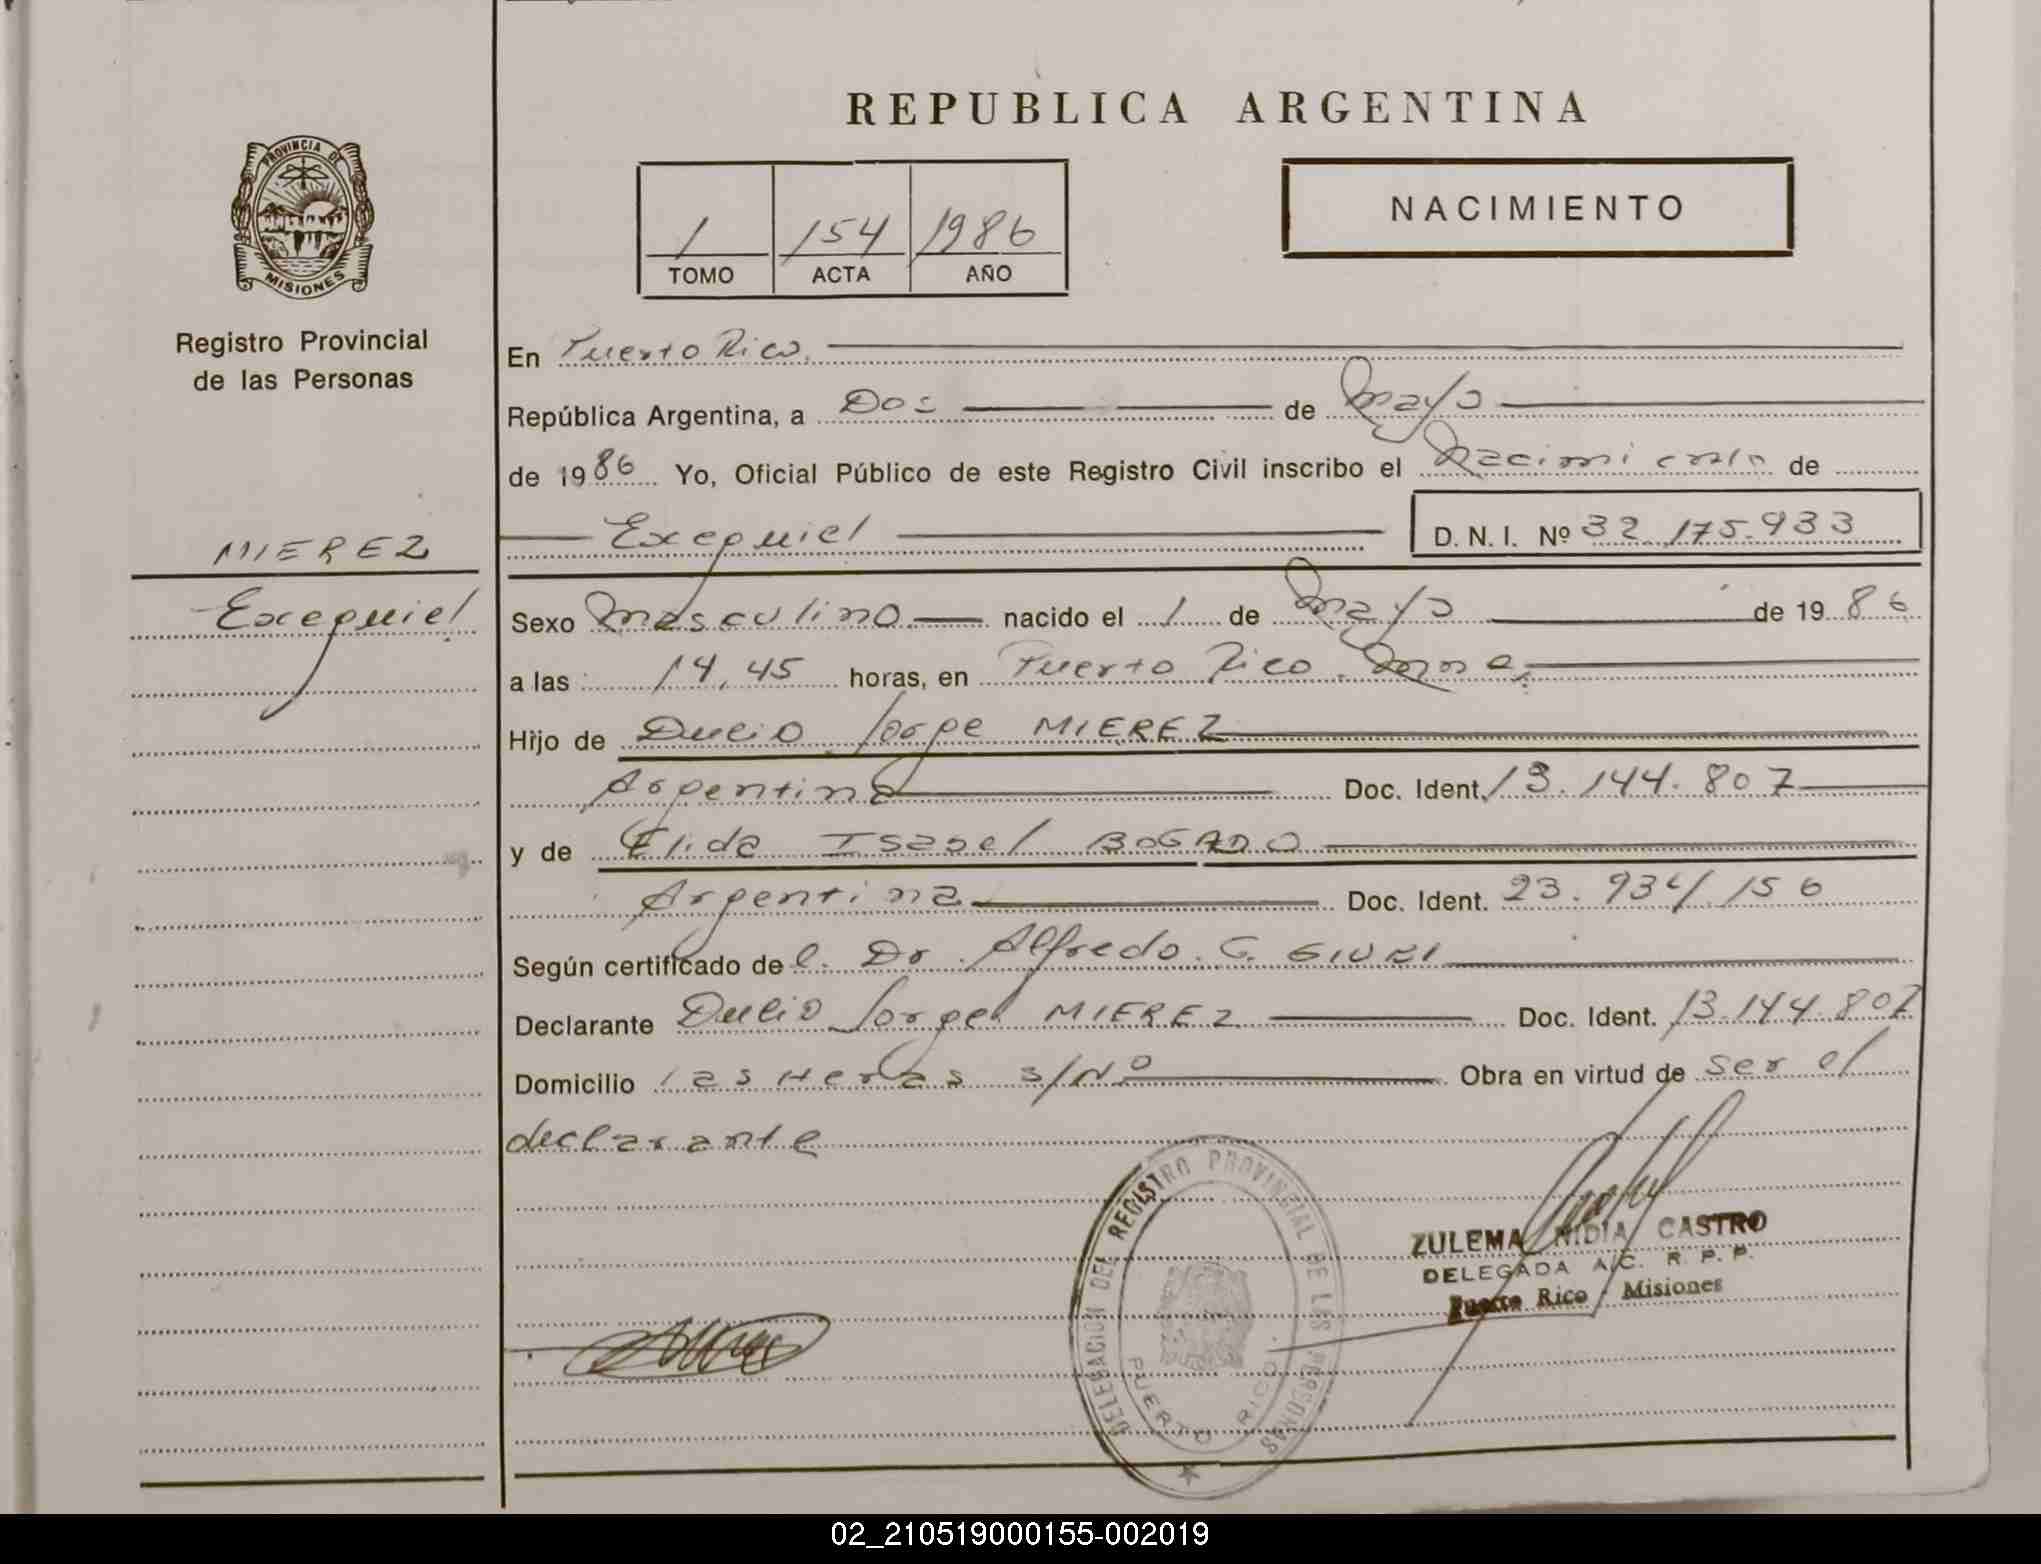 REPUBLICA ARGENTINA
PROVINCIA DE
MISIONES
Registro Provincial
de las Personas
1 154 1986
TOMO ACTA AÑO
NACIMIENTO
En Puerto Rico.
República Argentina, a Dos de Mayo
de 1986 Yo, Oficial Público de este Registro Civil inscribo el Nacimiento de
Exequiel D. N. I. Nº 32.175.933
MIEREZ
Exequiel
Sexo Masculino nacido el 1 de Mayo de 1986
a las 14,45 horas, en Puerto Rico. Mnes.
Hijo de Duelio Jorge MIEREZ
Argentino Doc. Ident. 13.144.807
y de Elida Isabel BOGADO
Argentina Doc. Ident. 23.934.156
Según certificado del. Dr. Alfredo. G. GIUZI
Declarante Duelio Jorge MIEREZ Doc. Ident. 13.144.807
Domicilio las Heras s/Nº Obra en virtud de ser el
declarante
DELEGACION DEL REGISTRO PROVINCIAL DE LAS PERSONAS
PUERTO RICO
ZULEMA NIDIA CASTRO
DELEGADA A/C. R. P. P.
Puerto Rico - Misiones
02_210519000155-002019